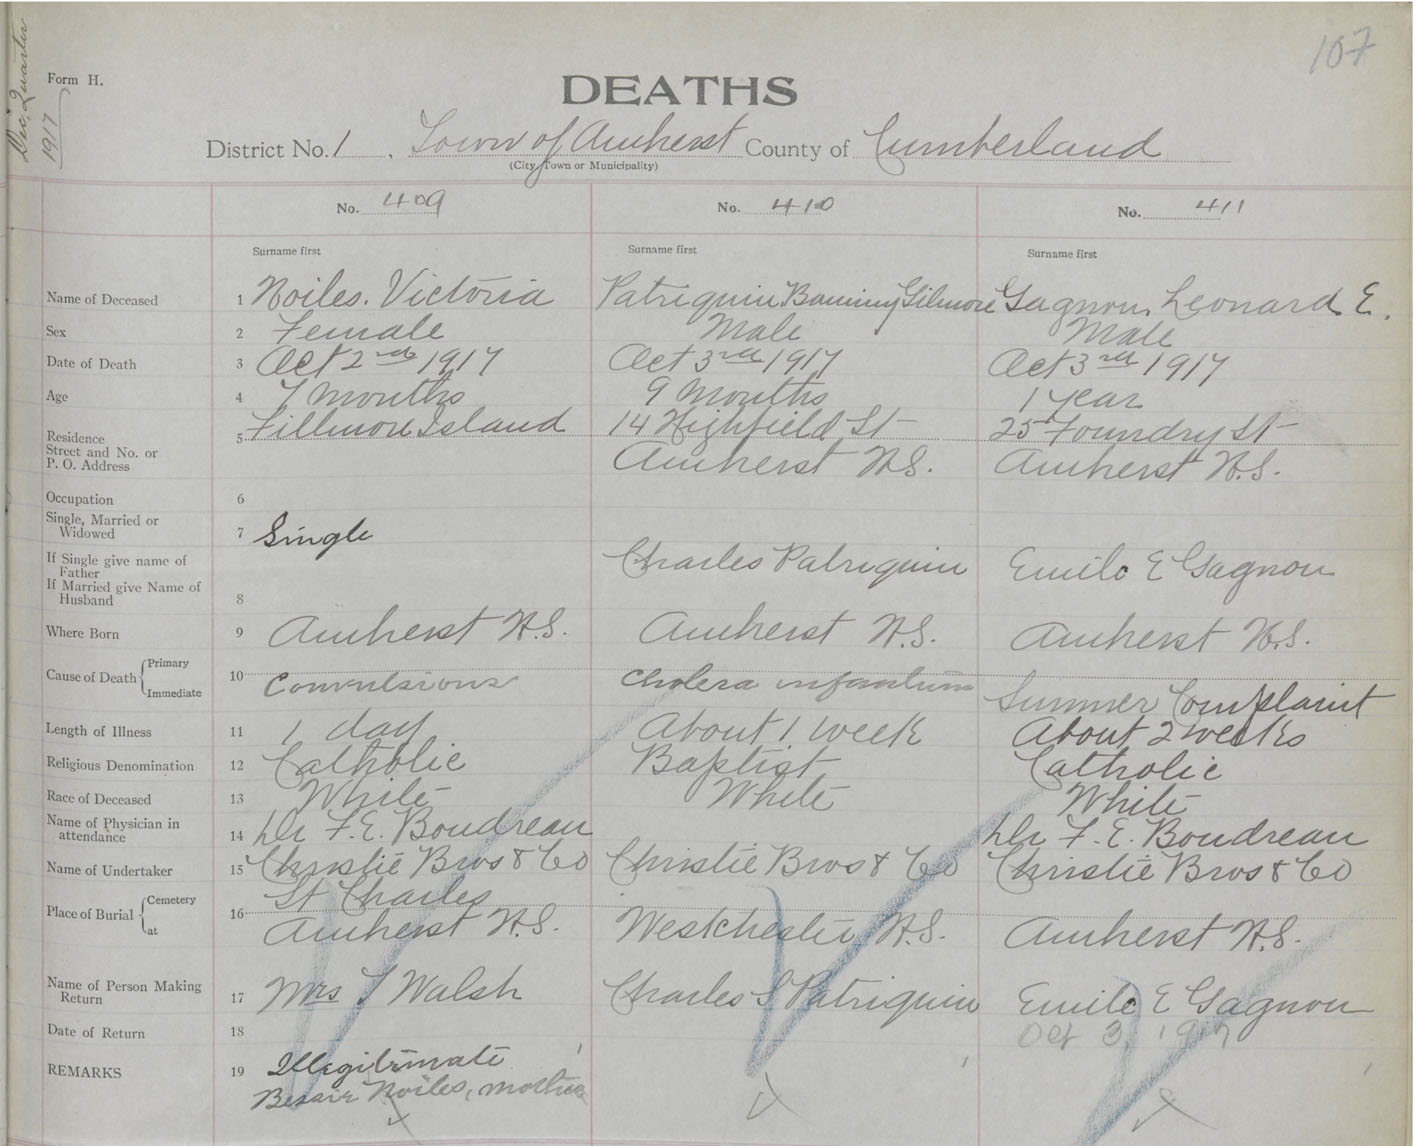 107
Dec, Quarter
1917
Form H.
DEATHS
District No. 1, Town of Amherst County of Cumberland
(City Town or Municipality)
No. 409 No. 410 No. 411
Surname first Surname first Surname first
Name of Deceased 1 Noiles. Victoria Patriquin Gilmore Gagnon, Leonard E.
Sex 2 Female Male Male
Date of Death 3 Oct 2nd 1917 Oct 3rd 1917 Oct 3rd 1917
Age 4 7 months 9 Months 1 year
Residence 5 Fillmore Island 14 Highfield St 25 Foundry St
Street and No. or
P. O. Address Amherst N.S. Amherst N.S.
Occupation 6
Single, Married or
Widowed 7 Single
If Single give name of
Father Charles Patriquin Emile E Gagnon
If Married give Name of
Husband 8
Where Born 9 Amherst N.S. Amherst N.S. Amherst N.S.
Cause of Death Primary 10 Convulsions Cholera infantum
Immediate Summer Complaint
Length of Illness 11 1 day About 1 week About 2 weeks
Religious Denomination 12 Catholic Baptist Catholic
Race of Deceased 13 White White White
Name of Physician in
attendance 14 Dr F. E. Boudreau Dr F. E. Boudreau
Name of Undertaker 15 Christie Bros & Co Christie Bros & Co Christie Bros & Co
Place of Burial Cemetery 16 St Charles
at Amherst N.S. Westchester N.S. Amherst N.S.
Name of Person Making
Return 17 Mrs Walsh Charles S Patriquin Emile E Gagnon
Date of Return 18 Oct 3, 1917
REMARKS 19 Illegitimate
Bessie Noiles, mother